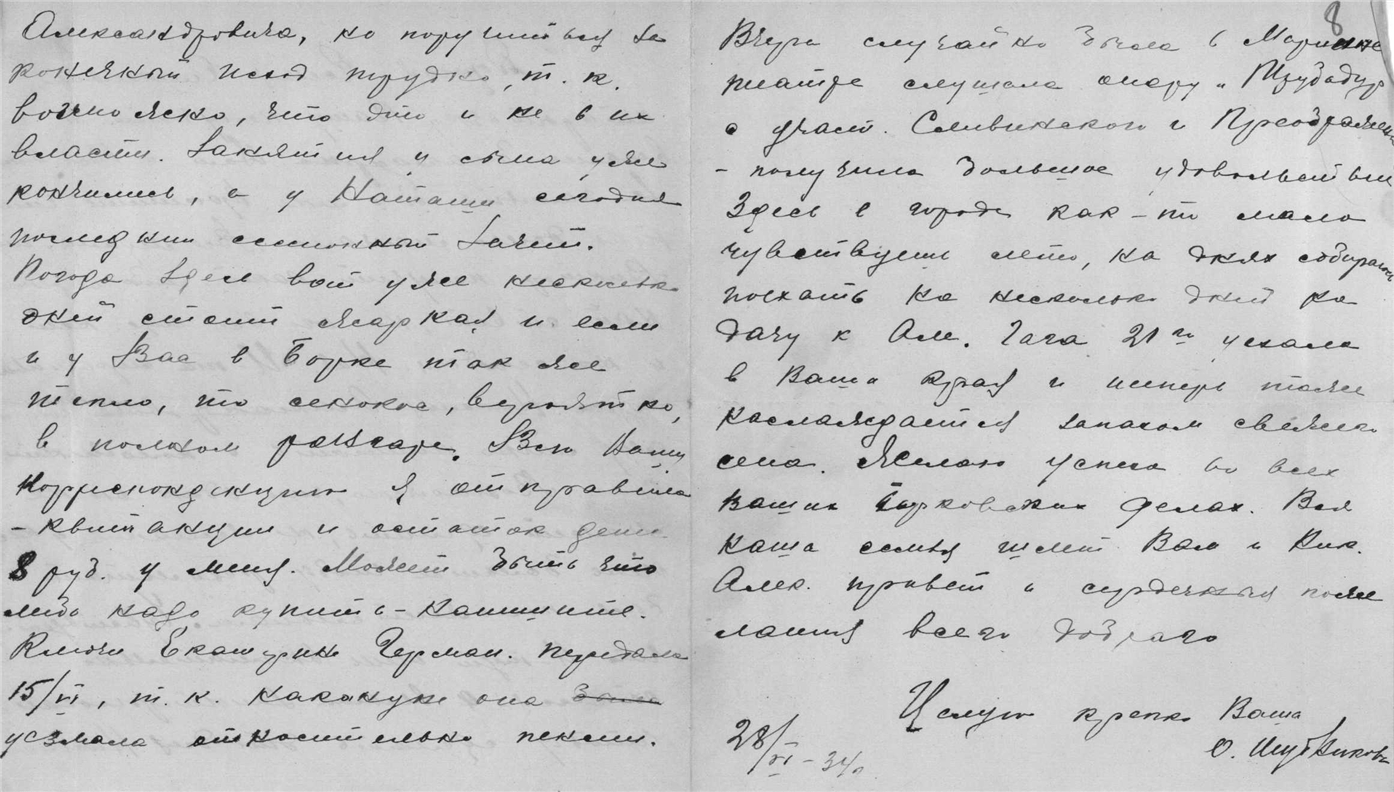 Александровича, но поручиться за
конечный исход трудно, т. к.
возможно, что это и не в их
власти. Занятия у сына уже
кончились, а у Наташи сегодня
последний зачет.
Погода здесь вот уже несколько
дней стоит жаркая и если
и у Вас в Борке так же
тепло, то сенокос, вероятно,
в полном разгаре. Всю Вашу
корреспонденцию я отправила
– квитанции и остаток денег
8 руб. у меня. Может быть что
либо надо купить – напишите.
Ключи Екатерине Герман. передала
15/VI, т. к. накануне она была
уезжала относительно пенсии.
8
Вчера случайно была в Мариинс
театре слушала оперу „Трубадур
с участ. Сливинского и Преображенс
– получила большое удовольствие
Здесь в городе как-то мало
чувствуешь лето, на днях собираюсь
поехать на несколько дней на
дачу к Ал. Гага 21го уехала
в Ваши края и теперь тоже
наслаждается запахом свежего
сена. Желаю успеха во всех
ваших Борковских делах. Вся
наша семья шлет Вам и Ник.
Алек. привет и сердечныя поже
лания всего доброго
Целую крепко Ваша
О.
28/VI – 34 г.